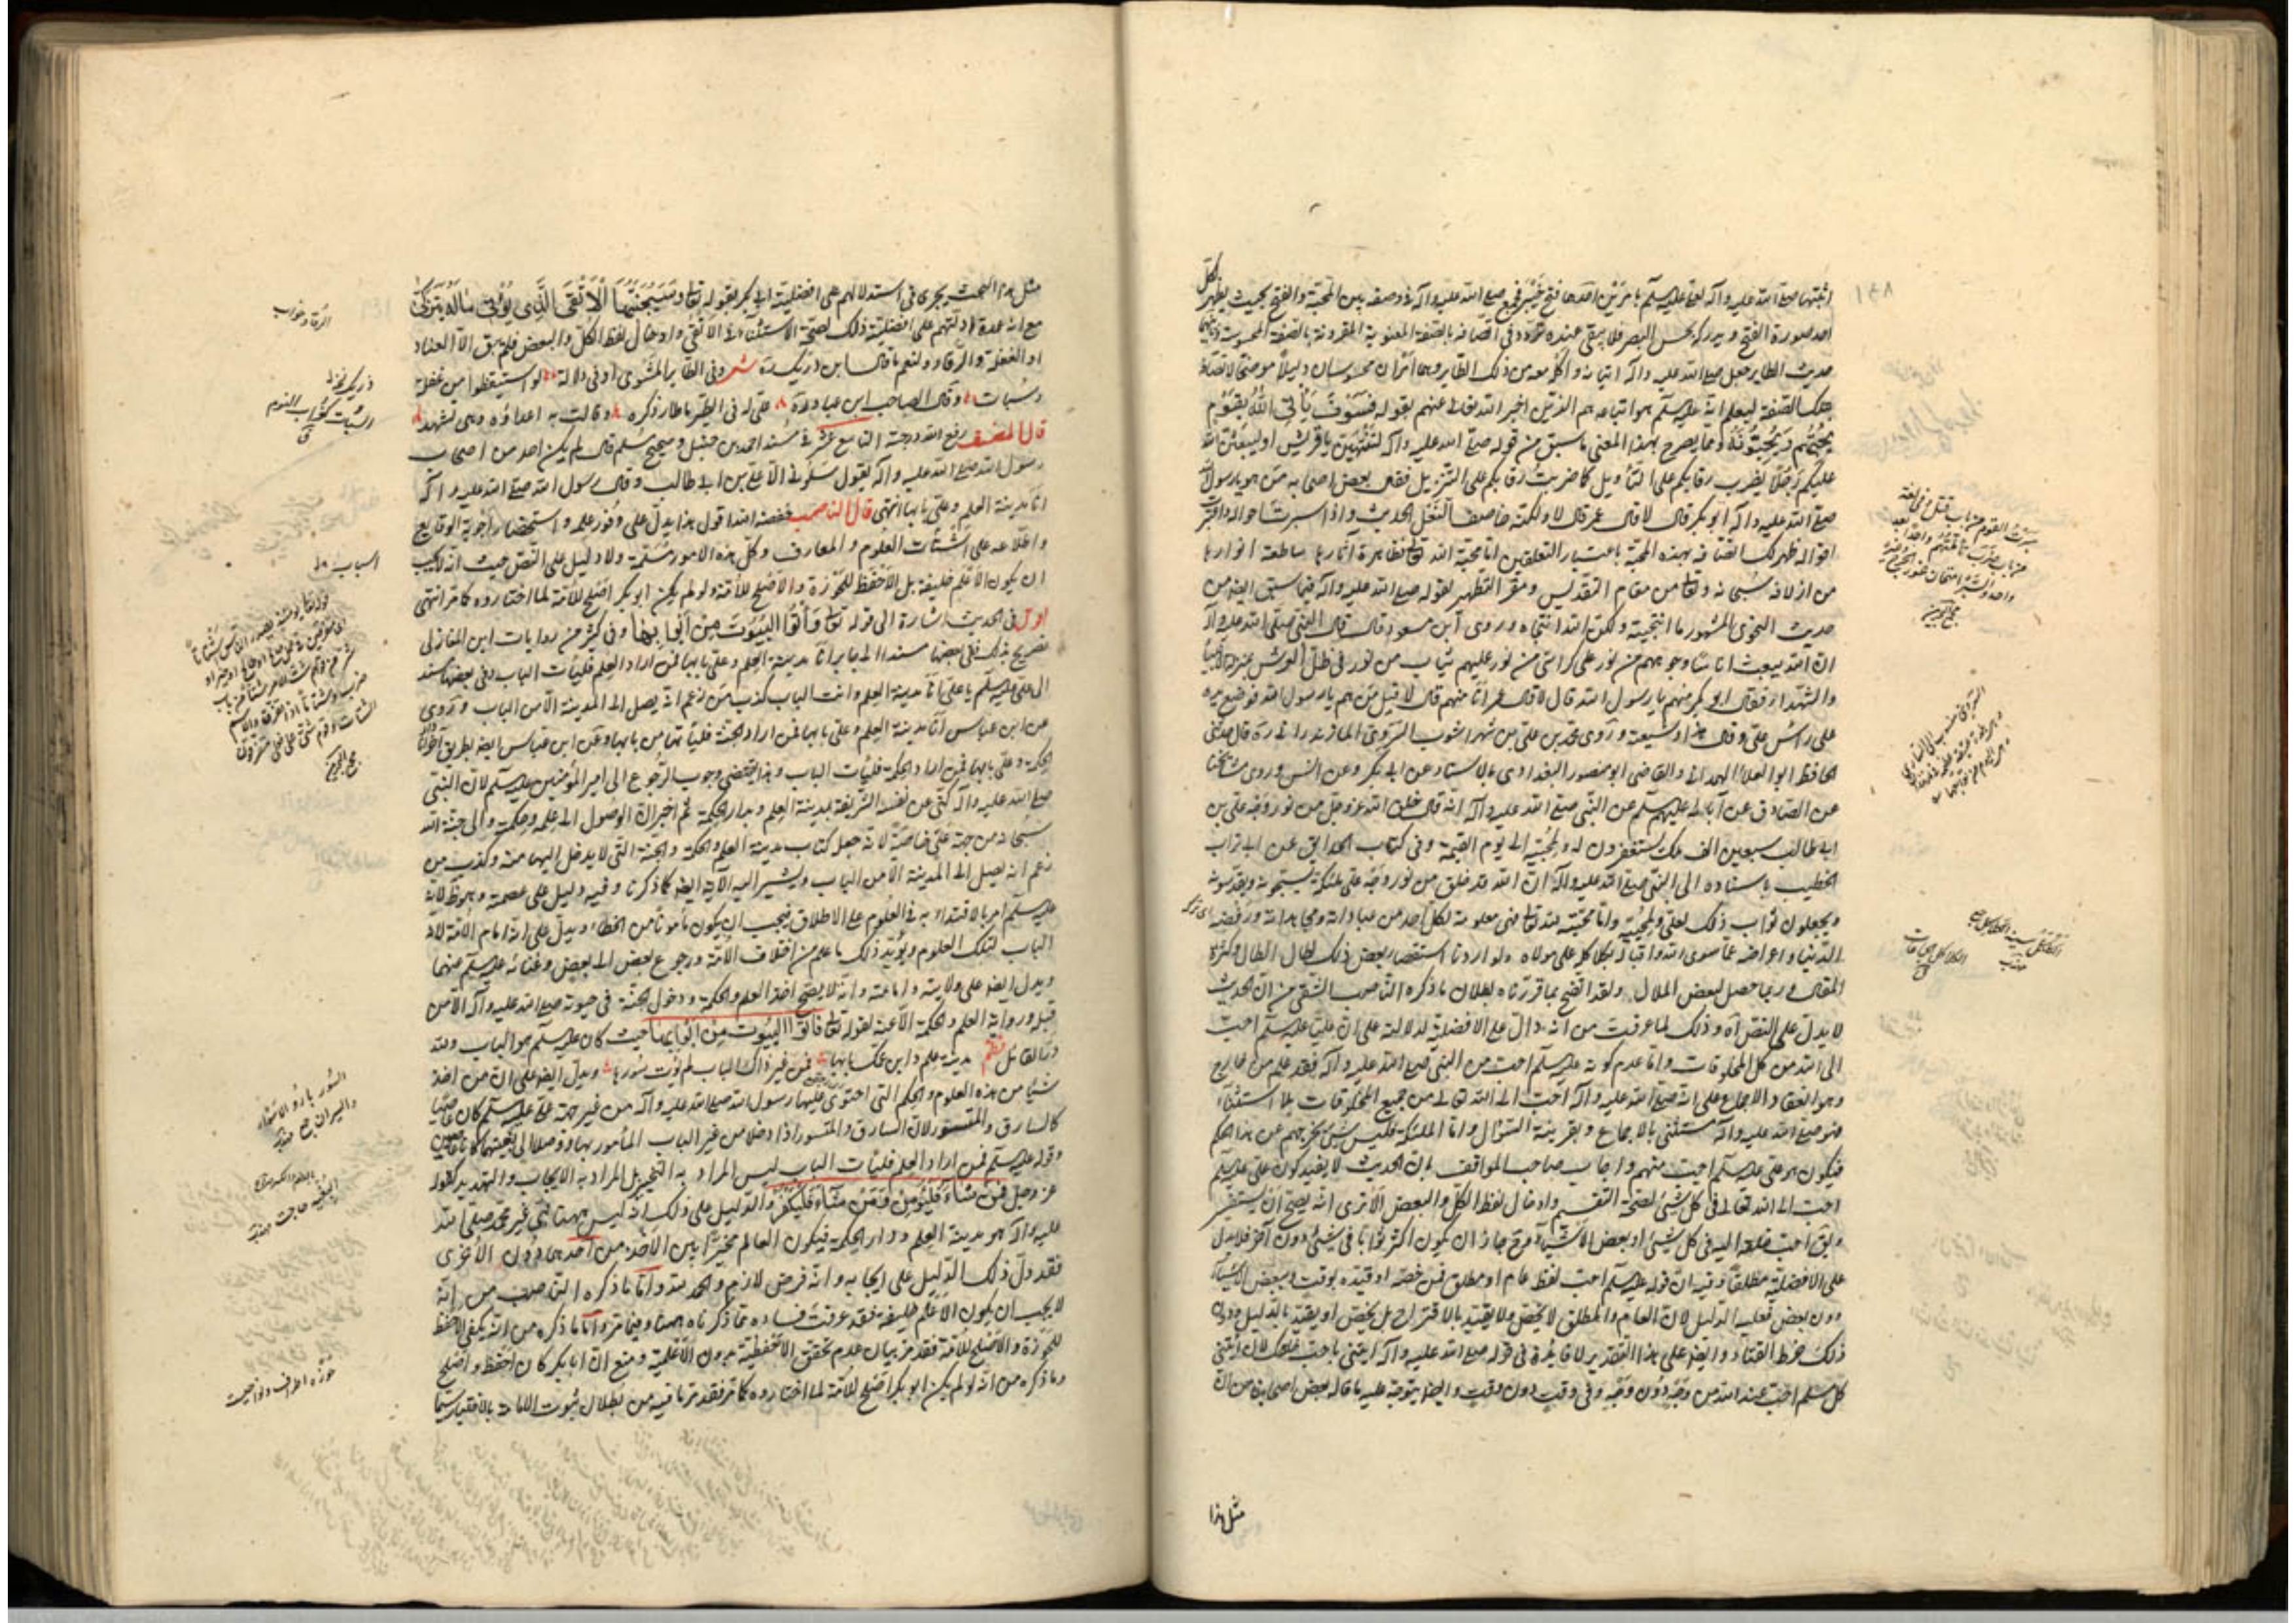 اثبتها صلى الله عليه وآله لعلى عليه السلم بامرين احدهما فتح خيبر فجمع صلى الله عليه وآله في وصفه بين المحبة والفتح بحيث يظهر لكل
احد صورة الفتح ويدركه بحس البصر فلا يبقى عنده تردد في اتصافه بالصفة المعنوية المقرونة بالصفة المحسوسة وثانيهما
حديث الطاير جعل صلى الله عليه وآله اتيانه واكله معه من ذلك الطاير وهما امران محسوسان دليلا موضحا لاتصافه
بتلك الصفة ليعلم انه عليه السلم هو واتباعه هم الذين اخبر الله تعالى عنهم بقوله فسوف يأتي الله بقوم
يحبهم ويحبونه ومما يصرح بهذا المعنى ما سبق من قوله صلى الله عليه وآله لتنتهين يا قريش او ليبعثن الله
عليكم رجلا يضرب رقابكم على التأويل كما ضربت رقابكم على التنزيل فقال بعض اصحابه من هو يا رسول الله
صلى الله عليه وآله ابو بكر قال لا قال عمر قال لا ولكنه خاصف النعل الحديث واذا سبرت احواله
اقواله ظهر لك اتصافه بهذه المحبة باعتبار التعلقين اما محبة الله تعالى فظاهرة آثارها ساطعة انوارها
من ازلافه سبحانه وتعالى من مقام التقديس ومقر التطهير لقوله صلى الله عليه وآله فيما سبق ايضا من
حديث النجوى المشهور ما انتجيته ولكن الله انتجاه وروى ابن مسعود قال قال النبي صلى الله عليه وآله
ان الله يبعث اناسا وجوههم من نور على كراسي من نور عليهم ثياب من نور في ظل العرش بمنزلة الانبياء
والشهداء فقال ابو بكر منهم يا رسول الله قال لا قال عمر انا منهم قال لا قيل من هم يا رسول الله فوضع يده
على راس علي وقال هذا وشيعته وروى محمد بن علي بن شهراشوب السروي المازندراني ره قال حدثني
الحافظ ابو العلاء الهمداني والقاضي ابو منصور البغدادي بالاسناد عن ابي بكر وعن انس وروى مشايخنا
عن الصادق عن آبائه عليهم السلم عن النبي صلى الله عليه وآله انه قال خلق الله عز وجل من نور وجه علي بن
ابي طالب سبعين الف ملك يستغفرون له ولمحبيه الى يوم القيمة وفي كتاب الحدايق عن ابي تراب
الخطيب باسناده الى النبي صلى الله عليه وآله ان الله قد خلق من نور وجه علي ملئكة يسبحونه ويقدسونه
ويجعلون ثواب ذلك لعلي ولمحبيه واما محبته لله تعالى فهي معلومة لكل احد من عباداته ومجاهداته ورفضه
الدنيا واعراضه عما سوى الله واقباله بكلكله على مولاه ولو اردنا استقصاء بعض ذلك لطال المطال وكثرة
المقال وربما حصل لبعض الملال ولقد اتضح بما قررناه بطلان ما ذكره الناصب الشقي من ان الحديث
لا يدل على النص آه وذلك لما عرفت من انه دال على الافضلية لدلالته على ان عليا عليه السلم احب
الى الله من كل المخلوقات واما عدم كونه عليه السلم احب من النبي صلى الله عليه وآله فقد علم من خارج
وهو انعقاد الاجماع على انه صلى الله عليه وآله احب الى الله تعالى من جميع المخلوقات بلا استثناء
فهو صلى الله عليه وآله مستثنى بالاجماع وبقرينة السؤال واما الملئكة فليس شيء يخرجهم عن هذا الحكم
فيكون هو علي عليه السلم احب منهم واجاب صاحب المواقف بان الحديث لا يفيد كون علي عليه السلم
احب الى الله تعالى في كل شيء لصحة التقسيم وادخال لفظ الكل والبعض الا ترى انه يصح ان يستفسر
ويق احب خلقه اليه في كل شيء او بعض الاشياء وح جاز ان يكون اكثر ثوابا في شيء دون آخر فلا يدل
على الافضلية مطلقا وفيه ان قوله عليه السلم احب لفظ عام او مطلق فمن خصه او قيده بوقت وبعض الاشياء
دون بعض فعليه الدليل لان العام والمطلق لا يخص ولا يقيد بالاقتراح بل يخص او يقيد بالدليل ودون
ذلك خرط القتاد وايضا على هذا التقدير لا فايدة في قوله صلى الله عليه وآله ايتني باحب خلقك لان
كل مسلم احب عند الله من وجه دون وجه وفي وقت دون وقت وايضا يتوجه عليه ما قاله بعض اصحابنا من ان
مثل هذا
١٤٨
مثل هذا البحث يجرى في استدلالهم على افضلية ابي بكر بقوله تعالى وسيجنبها الاتقى الذي يؤتى ماله يتزكى
مع انه عمدة ادلتهم على افضليته ذلك لصحة الاستثناء في الاتقى وادخال لفظ الكل والبعض فلم يبق الا العناد
او الغفلة والرقاد ولنعم ما قال ابن رزيك ره شعر وفي الطاير المشوي اوفى دلالة لو استيقظوا من غفلة
وسبات وقال الصاحب ابن عباد ره علي له في الطير ما طار ذكره وقالت به اعداؤه وهي تشهد
قال المصنف رفع الله درجته التاسع عشر في مسند احمد بن حنبل وصحيح مسلم قال لم يكن احد من اصحاب
رسول الله صلى الله عليه وآله يقول سلوني الا علي بن ابي طالب وقال رسول الله صلى الله عليه وآله
انا مدينة العلم وعلي بابها انتهى قال الناصب خفضه الله اقول هذا يدل على وفور علمه واستحضاره اجوبة الوقايع
واطلاعه على اشتات العلوم والمعارف وكل هذه الامور مسلمة ولا دليل على النص حيث انه لا يجب
ان يكون الاعلم خليفة بل الاحفظ للحوزة والاصلح للامة ولو لم يكن ابو بكر اصلح للامة لما اختاروه كما مر انتهى
اقول في الحديث اشارة الى قوله تعالى وأتوا البيوت من ابوابها وفي كثير من روايات ابن المغازلي
تصريح بذلك ففي بعضها مسندا الى جابر انا مدينة العلم وعلي بابها فمن اراد العلم فليات الباب وفي بعضها مسندا
الى علي عليه السلم يا علي انا مدينة العلم وانت الباب كذب من زعم انه يصل الى المدينة الا من الباب وروى
عن ابن عباس انا مدينة العلم وعلي بابها فمن اراد الجنة فليأتها من بابها وعن ابن عباس ايضا بطريق آخر انا دار
الحكمة وعلي بابها فمن اراد الحكمة فليات الباب وهذا يقتضي وجوب الرجوع الى امير المؤمنين عليه السلم لان النبي
صلى الله عليه وآله كنى عن نفسه الشريفة بمدينة العلم وبدار الحكمة ثم اخبر ان الوصول الى علمه وحكمته والى جنة الله
سبحانه من جهة علي خاصة لانه جعله كباب مدينة العلم والحكمة والجنة التي لا يدخل اليها الا منه وكذب من
زعم انه يصل الى المدينة الا من الباب ويشير اليه الآية ايضا كما ذكرنا وفيه دليل على عصمته وهو ظ لانه
عليه السلم امر بالاقتداء به في العلوم على الاطلاق فيجب ان يكون مأمونا من الخطاء ويدل على انه امام الامة لانه
الباب لتلك العلوم ويؤيد ذلك ما علم من اختلاف الامة ورجوع بعض الى بعض وغنائه عليه السلم عنها
ويدل ايضا على ولايته وامامته وانه لا يصح اخذ العلم والحكمة ودخول الجنة في حيوته صلى الله عليه وآله الا من
قبله ورواية العلم والحكمة الا عنه لقوله تعالى فاتوا البيوت من ابوابها حيث كان عليه السلم هو الباب ولله
در القائل نظم مدينة علم وابن عمك بابها فمن غير ذاك الباب لم يؤت سورها ويدل ايضا على ان من اخذ
شيأ من هذه العلوم والحكم التي احتوى عليها رسول الله صلى الله عليه وآله من غير جهة علي عليه السلم كان عاصيا
كالسارق والمتسور لان السارق والمتسور اذا دخلا من غير الباب المأمور بها ووصلا الى بغيتهما كانا عاصيين
وقوله عليه السلم فمن اراد العلم فليات الباب ليس المراد به التخيير بل المراد به الايجاب والتهديد كقوله
عز وجل فمن شاء فليؤمن ومن شاء فليكفر والدليل على ذلك انه ليس ههنا نبي غير محمد صلى الله
عليه وآله هو مدينة العلم ودار الحكمة فيكون العالم مخيرا بين الاخذ من احدهما دون الاخرى
فقد دل ذلك الدليل على ايجابه وانه فرض لازم والحمد لله واما ما ذكره الناصب من انه
لا يجب ان يكون الاعلم خليفة فقد عرفت فساده مما ذكرناه ههنا وفيما مر واما ما ذكره من انه يكفي الاحفظ
للحوزة والاصلح للامة فقد مر بيان عدم تحقق الاحفظية بدون الاعلمية ومنع ان ابا بكر كان احفظ واصلح
وما ذكره من انه لو لم يكن ابو بكر اصلح للامة لما اختاروه كما مر فقد مر ما فيه من بطلان ثبوت الامامة بالاختيار سيما
الرقاد خواب